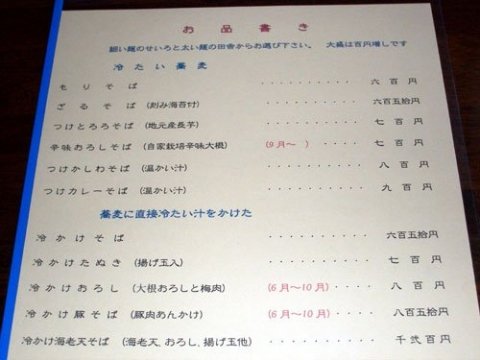 お品書き
細い麺のせいろと太い麺の田舎からお選び下さい。 大盛は百円増しです
冷たい蕎麦
もりそば ・・・・・・・・・・ 六百円
ざるそば (刻み海苔付) ・・・・・・・・・・ 六百五拾円
つけとろろそば (地元産長芋) ・・・・・・・・・・ 七百円
辛味おろしそば (自家栽培辛味大根) (9月～ ) ・・・・・ 七百円
つけかしわそば (温かい汁) ・・・・・・・・・・ 八百円
つけカレーそば (温かい汁) ・・・・・・・・・・ 九百円
蕎麦に直接冷たい汁をかけた
冷かけそば ・・・・・・・・・・ 六百五拾円
冷かけたぬき (揚げ玉入) ・・・・・・・・・・ 七百円
冷かけおろし (大根おろしと梅肉) (6月～10月) ・・・・ 八百円
冷かけ豚そば (豚肉あんかけ) (6月～10月) ・・・・ 八百五拾円
冷かけ海老天そば (海老天、おろし、揚げ玉他) ・・・・ 千弐百円